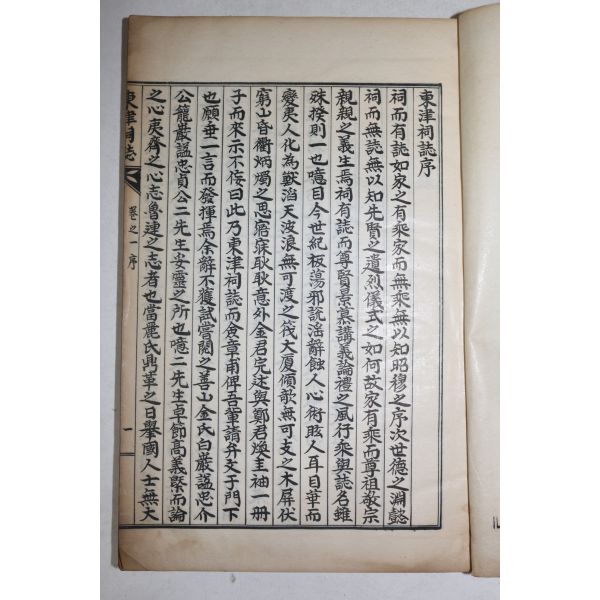 東津祠誌序
祠而有誌如家之有乘家而無乘無以知昭穆之序次世德之淵懿
祠而無誌無以知先賢之遺烈儀式之如何故家有乘而尊祖敬宗
親親之義生焉祠有誌而尊賢景慕講義論禮之風行乘與誌名雖
殊揆則一也噫目今世紀板蕩邪說滛辭蝕人心術眩人耳目草而
變夷人化為獸滔天波浪無可渡之筏大厦傾欹無可支之木屏伏
窮山昏衢炳燭之思寤寐耿耿意外金君完述與鄭君煥圭袖一册
子而來示不侫曰此乃東津祠誌而僉章甫俾吾輩請弁文于門下
也願垂一言而發揮焉余辭不獲試嘗閱之善山金氏白巖謚忠介
公籠巖謚忠貞公二先生妥靈之所也噫二先生卓節高義槩而論
之心夷齊之心志魯連之志者也當麗氏鼎革之日舉國人士無大
東津祠誌
卷之一 序
一